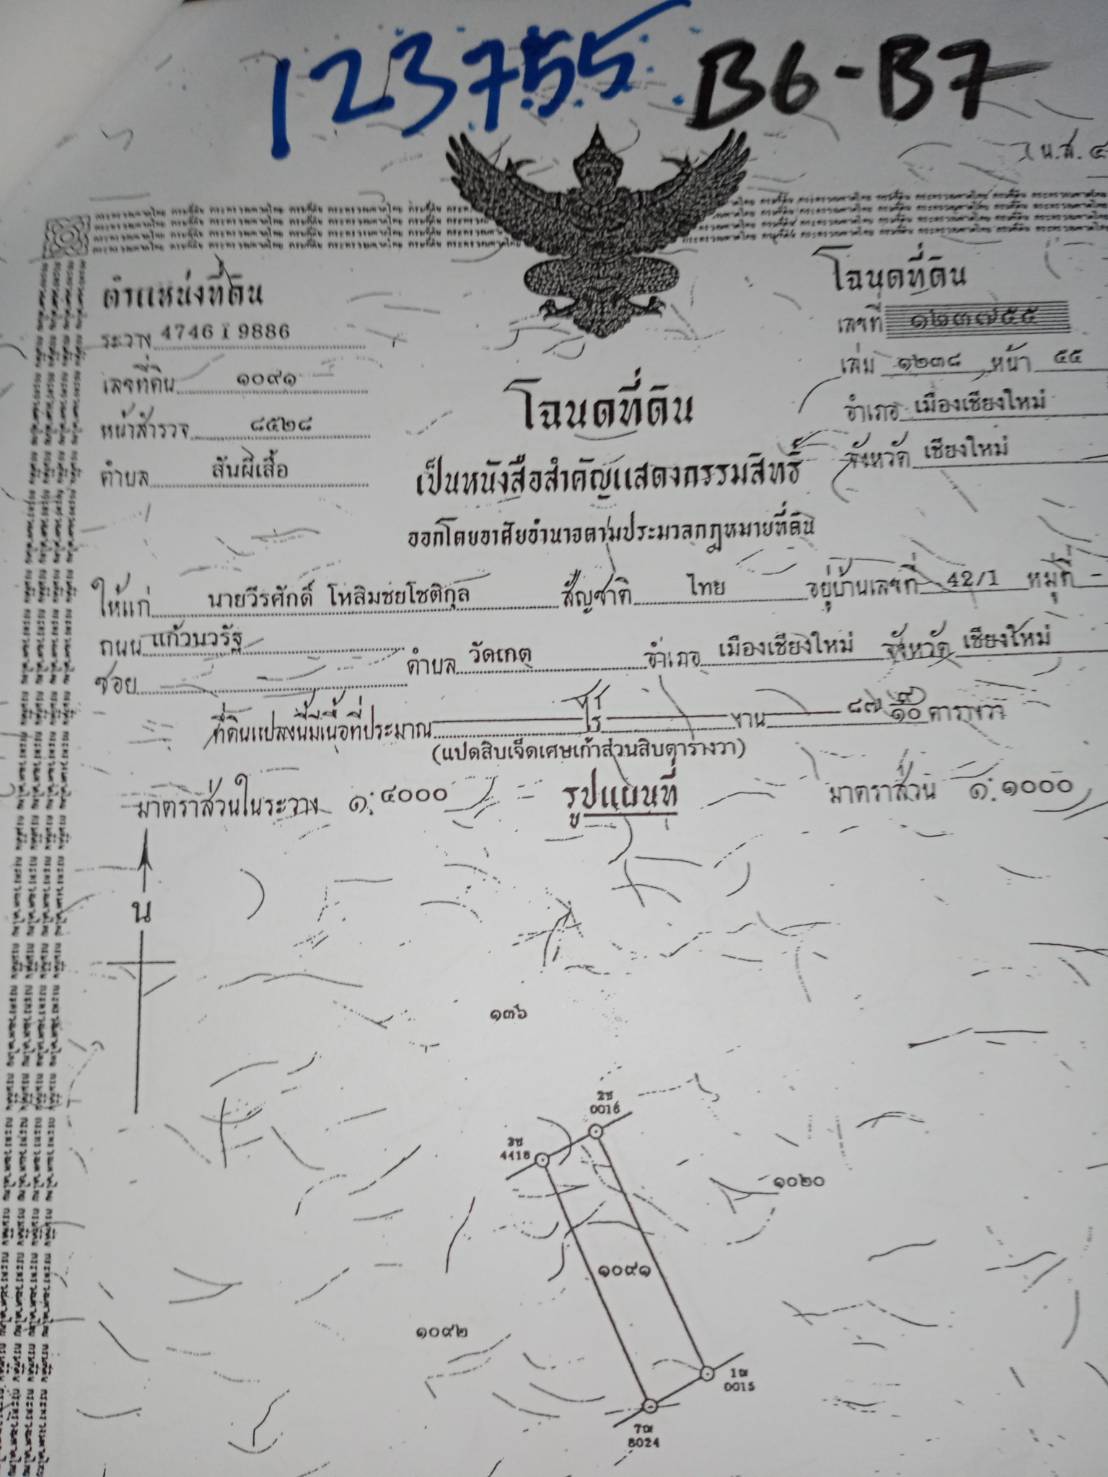 123755 B6-B7
น.ส. ๔
ตำแหน่งที่ดิน
ระวาง 4746 I 9886
เลขที่ดิน ๑๐๙๑
หน้าสำรวจ ๘๕๒๘
ตำบล สันผีเสื้อ
โฉนดที่ดิน
เลขที่ ๑๒๓๗๕๕
เล่ม ๑๒๓๘ หน้า ๕๕
อำเภอ เมืองเชียงใหม่
จังหวัด เชียงใหม่
โฉนดที่ดิน
เป็นหนังสือสำคัญแสดงกรรมสิทธิ์
ออกโดยอาศัยอำนาจตามประมวลกฎหมายที่ดิน
ให้แก่ นายวีรศักดิ์ โหลิมชยโชติกุล สัญชาติ ไทย อยู่บ้านเลขที่ 42/1 หมู่ที่ -
ถนน แก้วนวรัฐ
ซอย ตำบล วัดเกต อำเภอ เมืองเชียงใหม่ จังหวัด เชียงใหม่
ที่ดินแปลงนี้มีเนื้อที่ประมาณ ไร่ งาน ๘๗ ๙/๑๐ ตารางวา
(แปดสิบเจ็ดเศษเก้าส่วนสิบตารางวา)
มาตราส่วนในระวาง ๑:๔๐๐๐ รูปแผนที่ มาตราส่วน ๑:๑๐๐๐
น
๑๓๖
2ช
0016
3ช
4418
๑๐๒๐
๑๐๙๑
๑๐๙๒
1ฒ
0015
7ฒ
8024